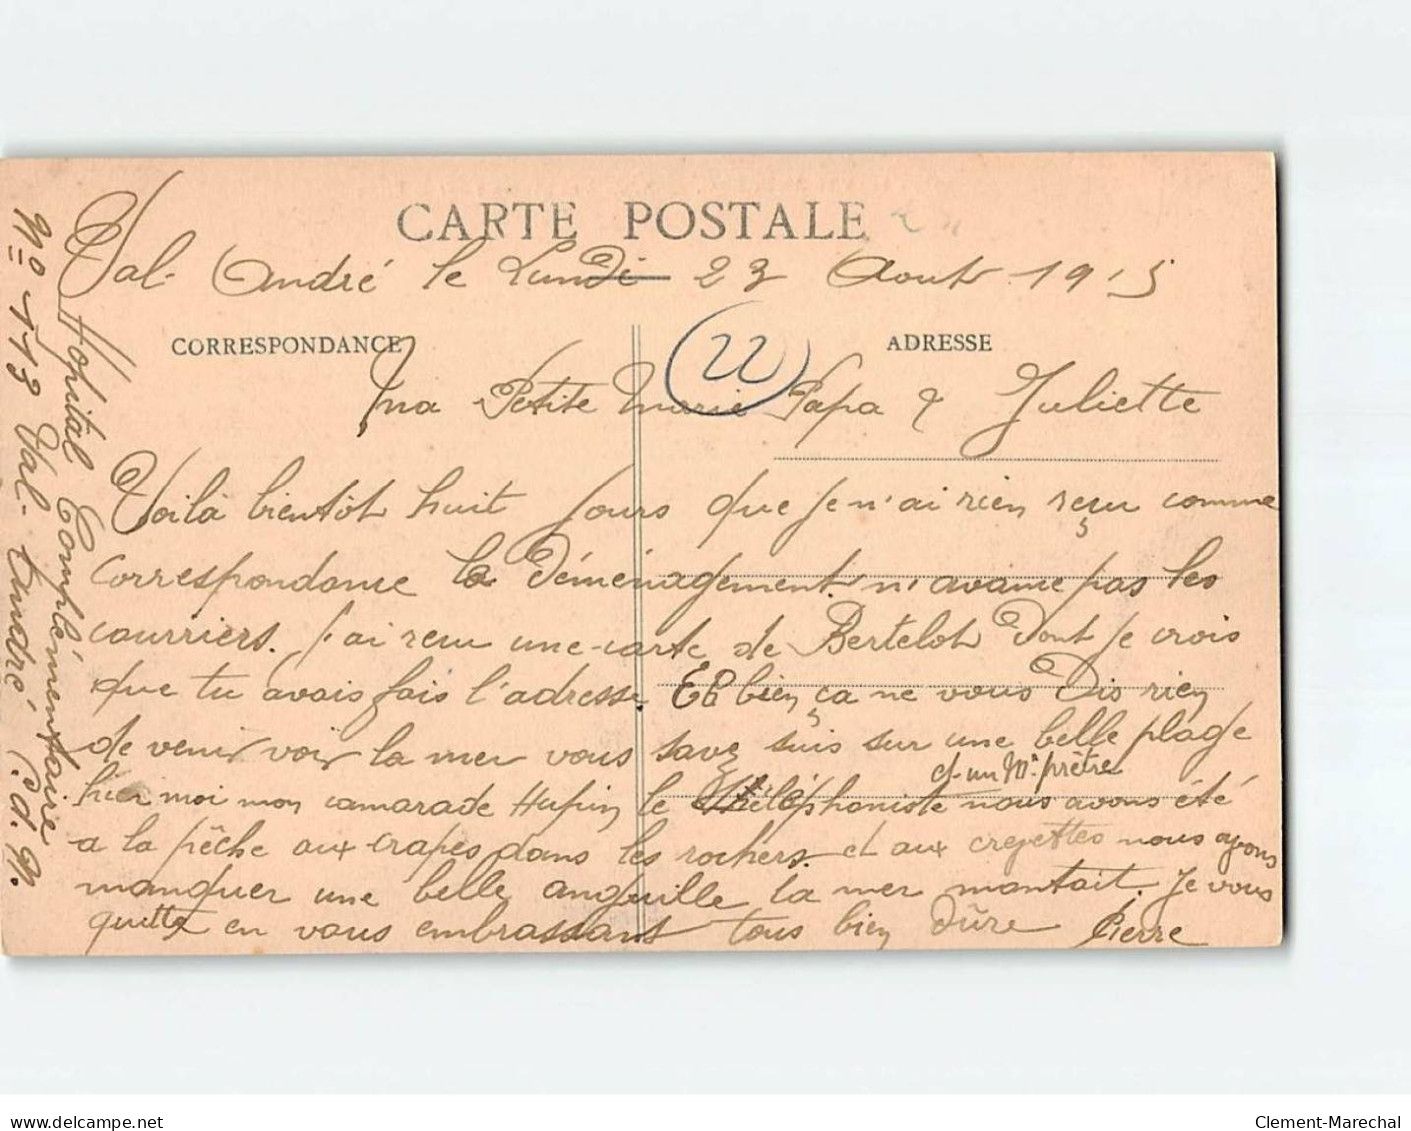 CARTE POSTALE
Val-André le Lundi 23 Aout 1915
CORRESPONDANCE
22
ADRESSE
Ma Petite Marie Papa & Juliette
Voilà bientôt huit Jours que Je n'ai rien reçu comme
correspondance le Déménagement n'avance pas les
courriers. J'ai reçu une carte de Bertelot Dont Je crois
que tu avais fais l'adresse Eb bien ça ne vous Dis rien
de venir voir la mer vous savez suis sur une belle plage
et un Mr prêtre
hier moi mon camarade Hupin le Téléphoniste nous avons été
a la pêche aux crapes dans les rochers. et aux crevettes nous avons
manquer une belle anguille la mer montait. Je vous
quitte en vous embrassant tous bien Dûre Pierre
Hopital Complémentaire
No 113 Val-André C.d.N.
www.delcampe.net
Clement-Marechal